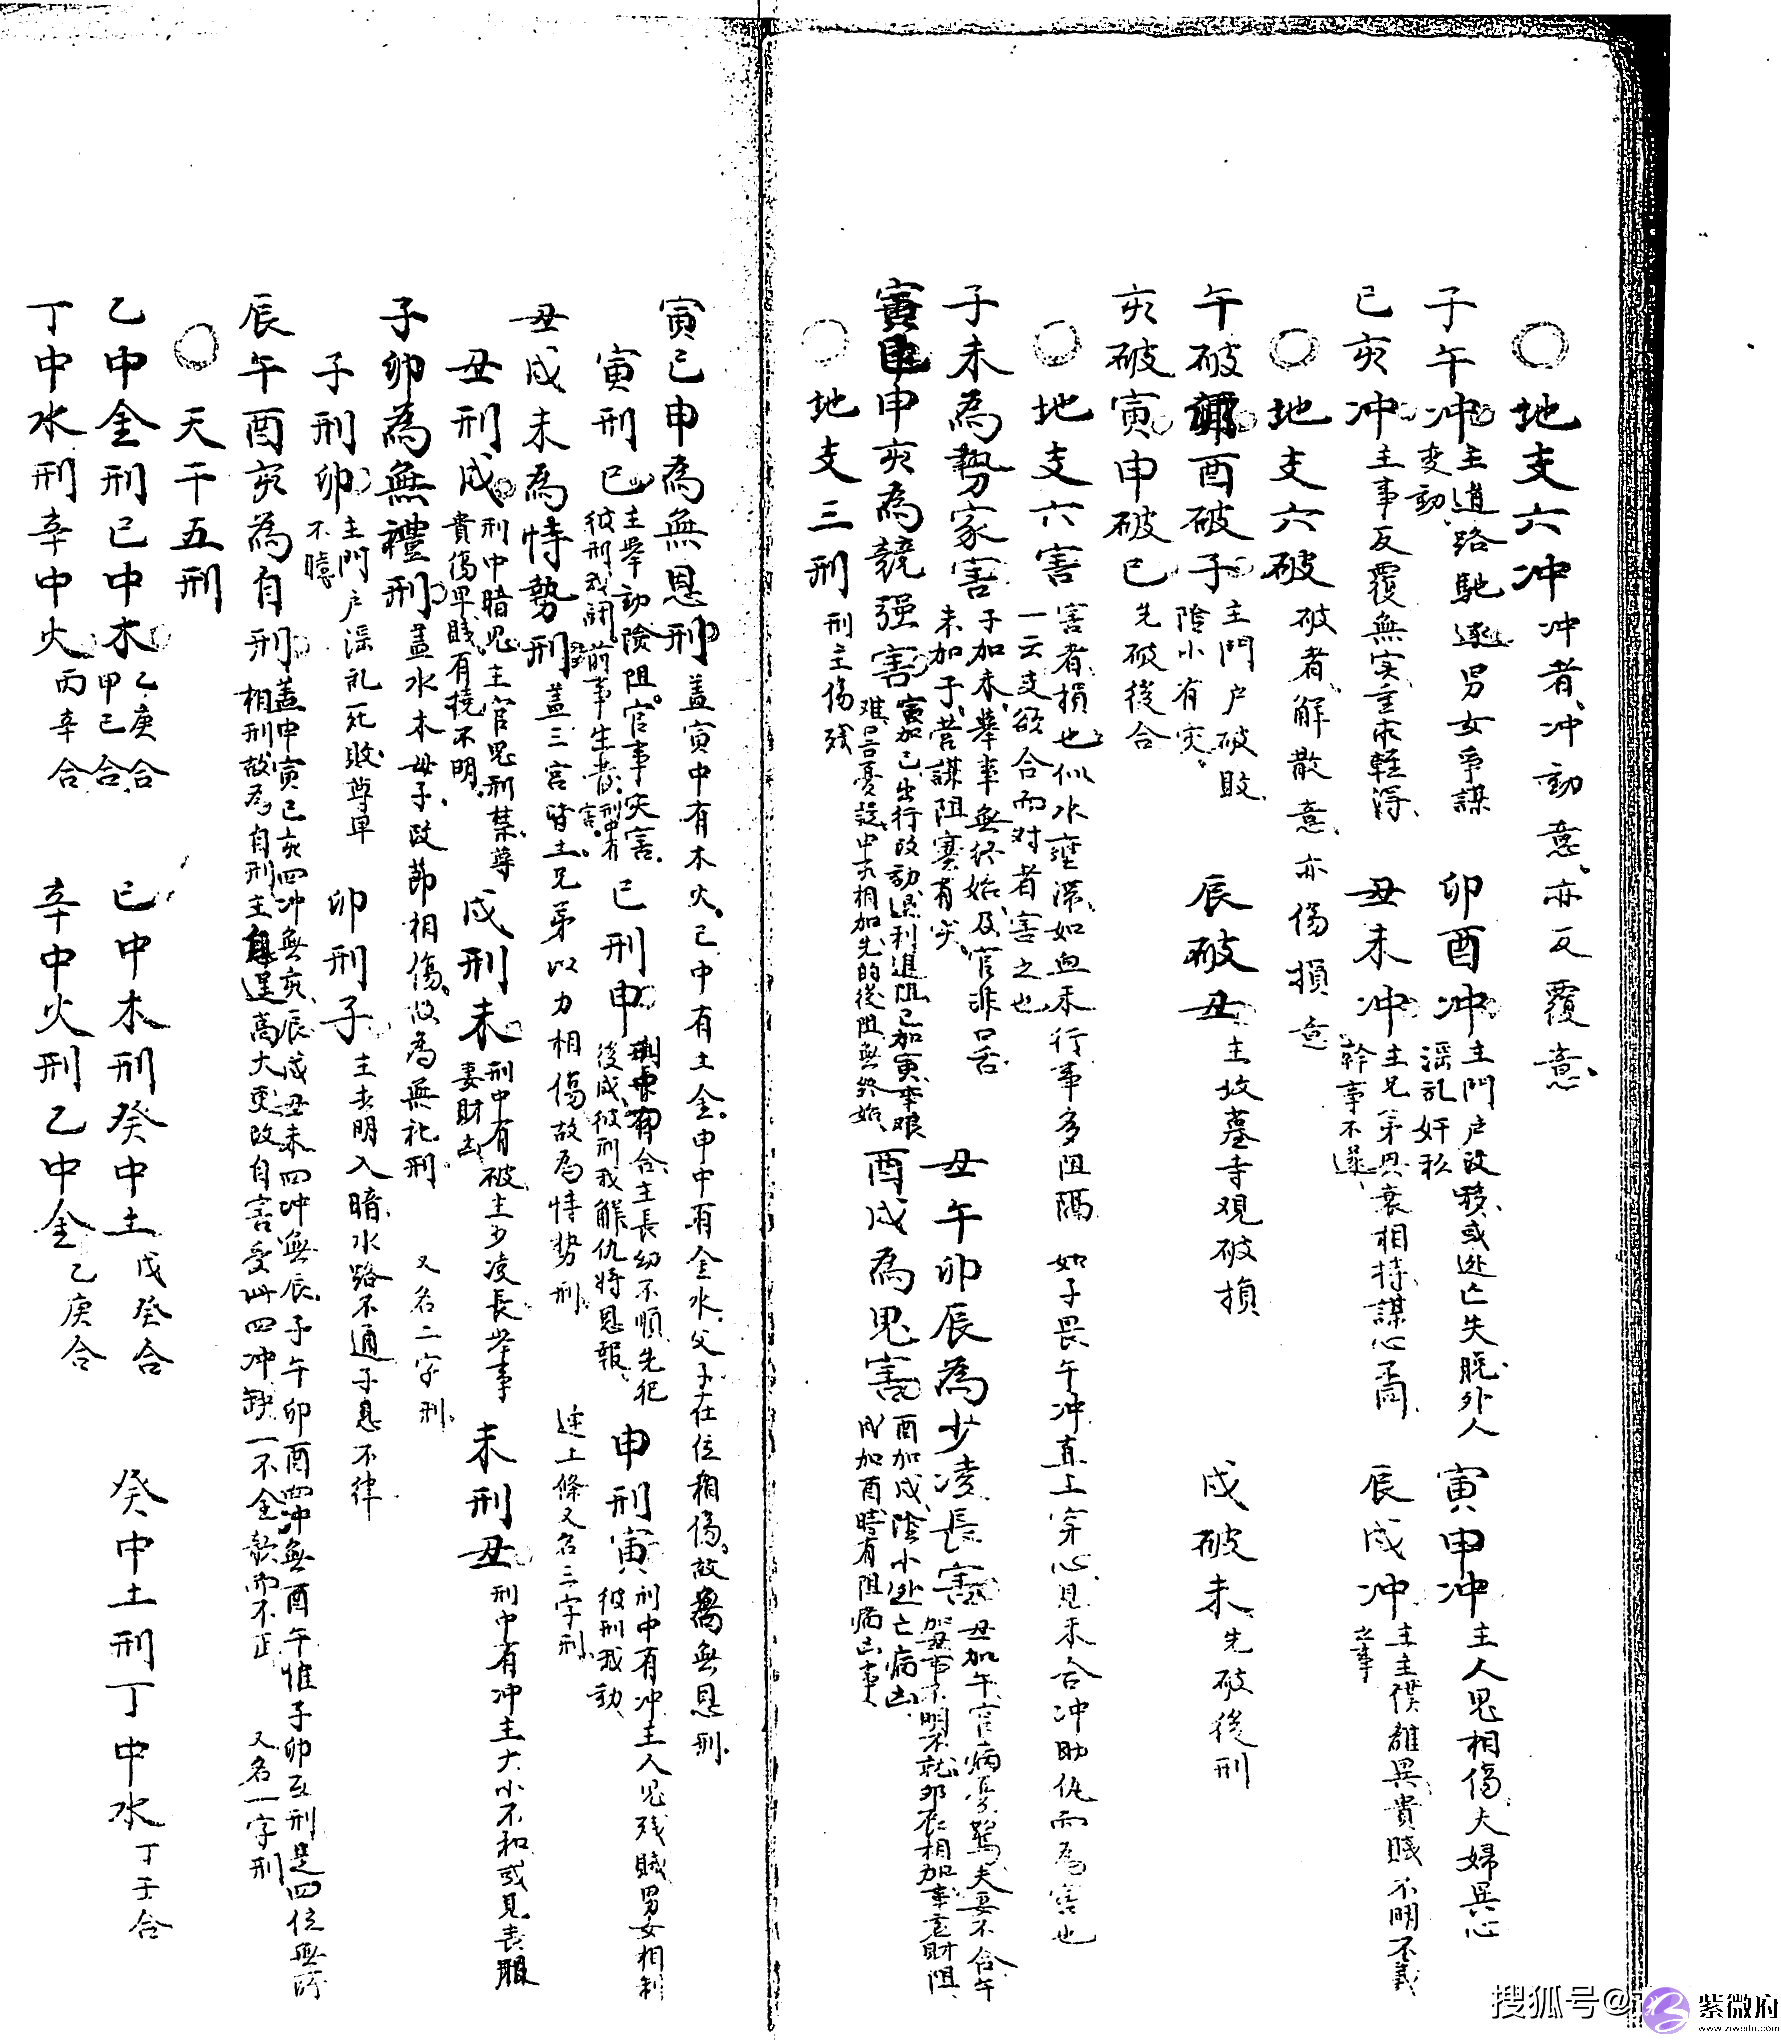 ○地支六冲 冲者、冲動意。亦反覆意。
子午冲 主道路馳逐男女爭謀变動 卯酉冲 主門户改移、或逃亡失脱、外人淫乱奸私 寅申冲 主人鬼相傷、夫婦異心
巳亥冲 主事反覆無実重求輕得、 丑未冲 主兄弟異衰相持謀心不同幹事不遂、 辰戌冲 主主僕離異、貴賤不明不義之事
○地支六破 破者、解散意、亦傷損意
午破卯酉破子 主門户破敗、陰小有灾。 辰破丑 主坟墓寺观破損
亥破寅申破巳 先破後合 戌破未 先破後刑
○地支六害 害者、損也、似水壅滞、如血未行事多阻隔 如子畏午冲直上穿心見未合冲助仇而為害也
一云支欲合而对者害之也
子未為勢家害 子加未、舉事無終始、及官非口舌、未加子、营謀阻寒有灾、 丑午卯辰為少凌長害 丑加午、官病[…]驚夫妻不合午加丑事不明不就卯辰相加事[…]財阻、
寅巳申亥為競强害 寅加巳、出行改動退利進阻巳加寅、事艰难口舌憂疑申亥相加先的後阻無終始、 酉戌為鬼害 酉加戌、陰小逃亡病凶、戌加酉時有阻病凶事
○地支三刑 刑主傷残
寅巳申為無恩刑 盖寅中有木火。巳中有土金。申中有金水。父子在位相傷。故為無恩刑、
寅刑巳 主舉動險阻。官事灾害、彼刑我闘前事生害刑中有害。 巳刑申 刑中有合、主長幼不順、先犯後成、彼刑我解仇将恩報、 申刑寅 刑中有冲、主人鬼残賊男女相制彼刑我動
丑戌未為恃勢刑 盖三宫皆土。兄弟以力相傷故為恃势刑、 連上條又名三字刑、
丑刑戌 刑中暗鬼主官鬼刑禁、尊貴傷卑賤有撓不明、 戌刑未 刑中有破、主少凌長、举事妻財凶 未刑丑 刑中有冲主大小不和或見丧服
子卯為無禮刑 盖水木母子、改節相傷、故為無礼刑 又名二字刑、
子刑卯 主門户淫乱死敗、尊卑不睦 卯刑子 主去明入暗、水路不通子息不律
辰午酉亥為自刑 盖申寅巳亥四冲無亥、辰戌丑未四冲無辰、子午卯酉四冲無酉午惟子卯互刑是四位無所相刑故為自刑主自逞高大更改自害受此四冲缺一不全[…]而不正 又名一字刑
○天干五刑
乙中金刑巳中木 乙庚合甲己合 巳中木刑癸中土 戊癸合 癸中土刑丁中水 丁壬合
丁中水刑辛中火 丙辛合 辛中火刑乙中金 乙庚合
搜狐号@
紫微府
www.ziweifu.com